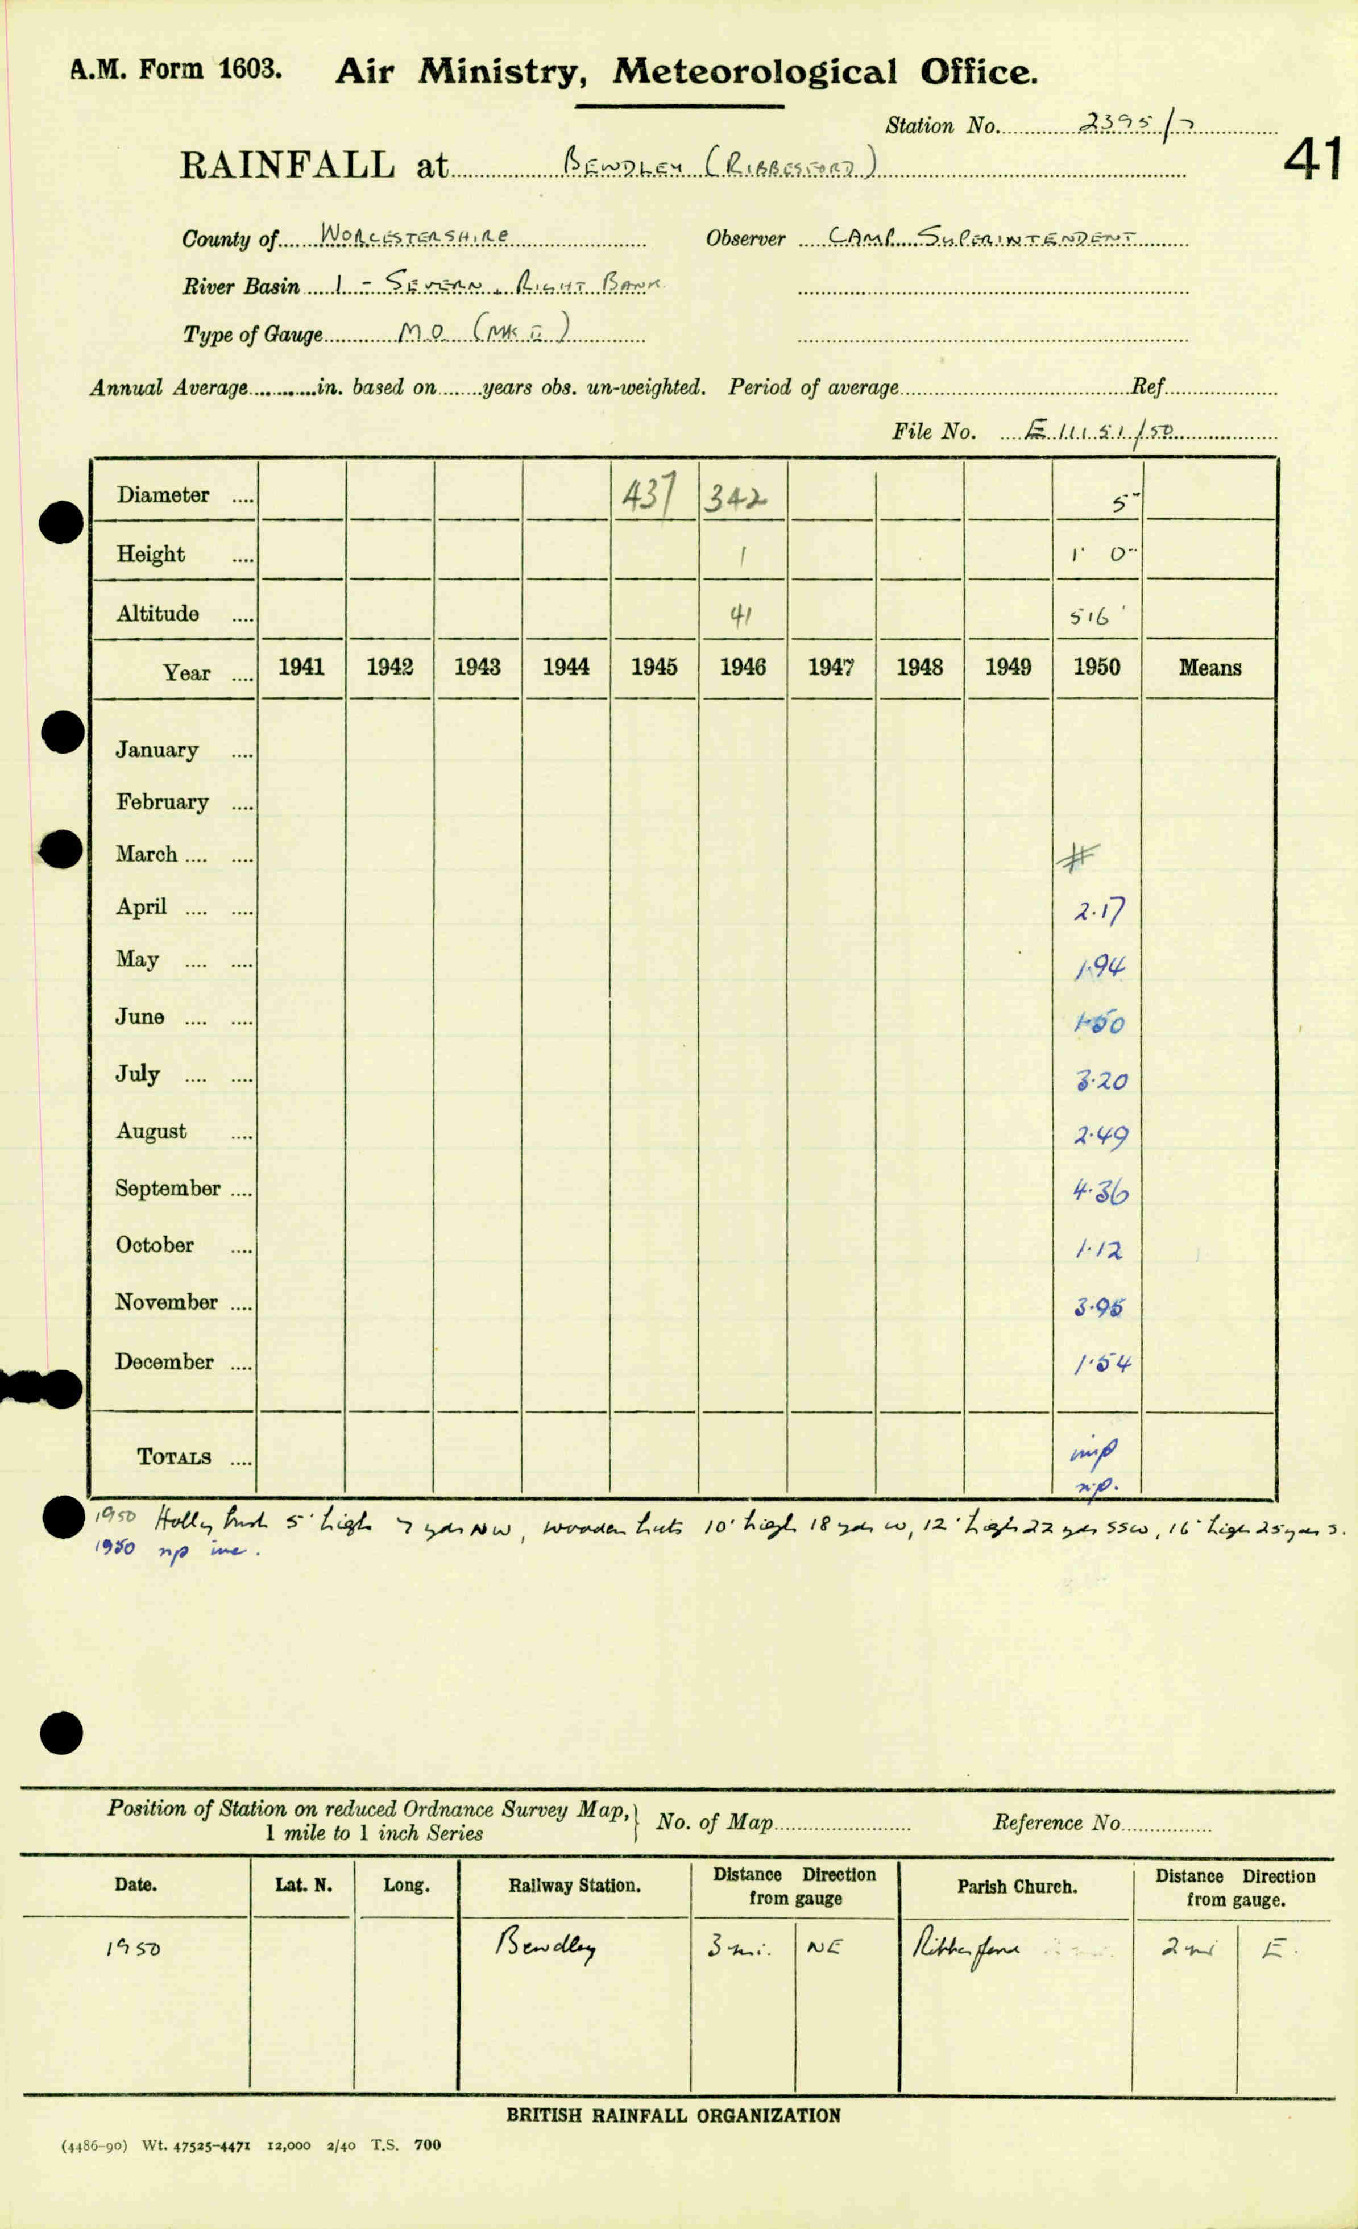 A.M. Form 1603. Air Ministry, Meteorological Office.
Station No. 2395/7
41
RAINFALL at BEWDLEY (RIBBESFORD)
County of WORCESTERSHIRE Observer CAMP SUPERINTENDENT
River Basin 1 - SEVERN, RIGHT BANK
Type of Gauge M.O. (MK II)
Annual Average in. based on years obs. un-weighted. Period of average Ref.
File No. E 11151/50
Diameter 437 342 5"
Height 1 1' 0"
Altitude 41 516'
Year 1941 1942 1943 1944 1945 1946 1947 1948 1949 1950 Means
January
February
March #
April 2.17
May 1.94
June 1.50
July 3.20
August 2.49
September 4.36
October 1.12
November 3.95
December 1.54
TOTALS imp
n.p.
1950 Holly bush 5' high 7 yds NW, wooden huts 10' high 18 yds W, 12' high 22 yds SSW, 16' high 25 yds S.
1950 np inc.
Position of Station on reduced Ordnance Survey Map, 1 mile to 1 inch Series } No. of Map Reference No.
Date. Lat. N. Long. Railway Station. Distance Direction from gauge Parish Church. Distance Direction from gauge.
1950 Bewdley 3 mi. NE Ribbesford 2 mi E.
BRITISH RAINFALL ORGANIZATION
(4486-90) Wt. 47525-4471 12,000 2/40 T.S. 700